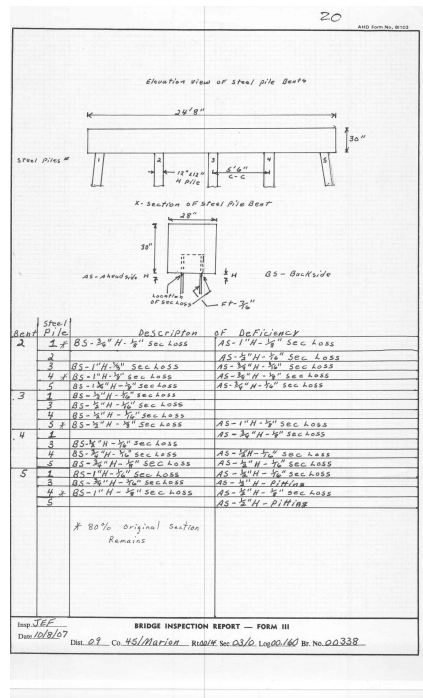 20
AHD Form No. BI103
Elevation view of Steel Pile Bents
24'8"
30"
Steel Piles # 1 2 3 4 5
12"x12" H Pile
5'6" C-C
X-Section of Steel Pile Bent
28"
30"
AS-Aheadside H H BS-Backside
Location of Sec Loss
Ft-3/16"
Bent Steel Pile Descripton of Deficiency
2 1* BS-3/4"H-1/8" Sec Loss AS-1"H-1/8" Sec Loss
2 AS-1/2"H-1/16" Sec Loss
3 BS-1"H-1/8" Sec Loss
4* BS-1"H-1/8" Sec Loss AS-3/4"H-1/8" Sec Loss
5 AS-3/4"H-1/16" Sec Loss
3 1 BS-1/2"H-1/16" Sec Loss
3 BS-1/2"H-1/16" Sec Loss
4 BS-1/2"H-1/16" Sec Loss
5* BS-1/2"H-1/8" Sec Loss AS-1"H-1/8" Sec Loss
4 1 AS-3/4"H-1/8" Sec Loss
3 BS-1/2"H-1/16" Sec Loss
4 BS-3/4"H-1/16" Sec Loss AS-1/2"H-1/16" Sec Loss
5 BS-3/4"H-1/8" Sec Loss AS-1/2"H-1/16" Sec Loss
5 1 BS-1"H-1/16" Sec Loss AS-1/2"H-1/16" Sec Loss
3 BS-3/4"H-1/16" Sec Loss AS-1/2"H-Pitting
4* BS-1"H-1/8" Sec Loss AS-1/2"H-1/8" Sec Loss
5 AS-1/2"H-Pitting
* 80% Original Section
Remains
Insp. JEF
BRIDGE INSPECTION REPORT — FORM III
Date 10/8/07
Dist. 09 Co. 45/Marion Rt. 0014 Sec. 03/0 Log 00.160 Br. No. 00338